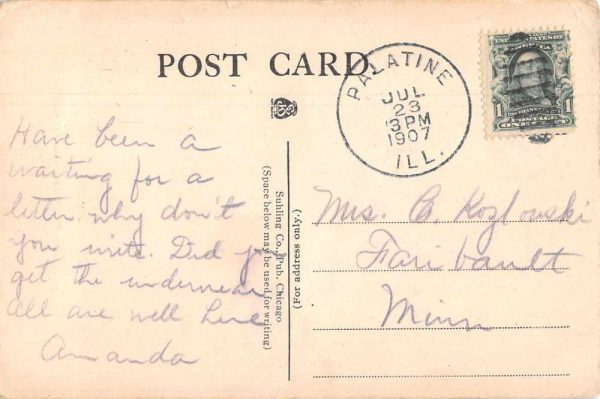 POST CARD
PALATINE
JUL
23
3 PM
1907
ILL.
1 1
POSTAGE
ONE CENT
Have been a
waiting for a
letter, why don't
you write. Did you
get the underwear
All are well here
Amanda
Suhling Co., Pub. Chicago
(Space below may be used for writing)
(For address only.)
Mrs. B. Kozlowski
Faribault
Minn